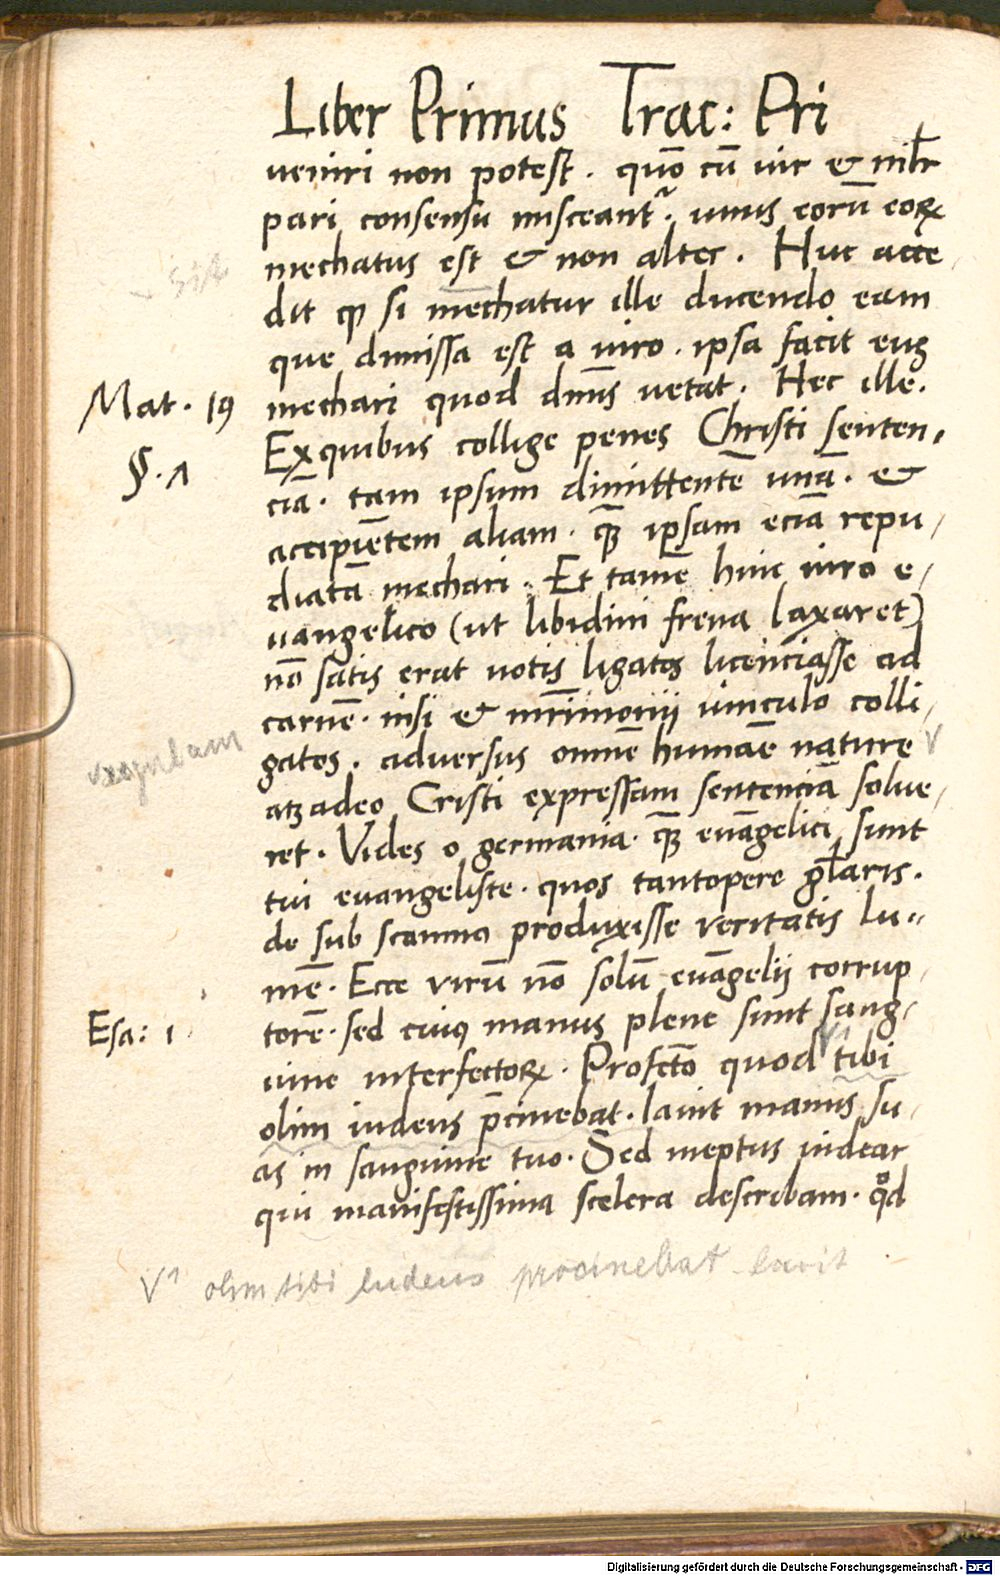 Liber Primus Trac: Pri
ueniri non potest . quõ cũ uir & mĩlr
pari consensu misceantr̃ . unus eorũ eoꝝ
mechatus est & non alter . Huc acce
dit ꝙ si mechatur ille ducendo eam
que dimissa est a uiro . ipsa facit eug
mechari quod dm̃s uetat . Hec ille .
Mat . 19
Ex quibus collige penes Christi senten,
§ . 1
ciã . tam ipsum dimittentẽ unã . &
accipiẽtem aliam . quã ipsam eciã repu,
diatã mechari . Et tamẽ huic uiro e,
uangelico (ut libidini frena laxaret)
nõ satis erat uotis ligatos licenciasse ad
carnẽ . nisi & mr̃imonij uinculo colli,
gatos . aduersus omnẽ humãe nature
atqꝫ adeo Cristi expressam sentenciã solue,
ret . Vides o germania . quã euãgelici sunt
tui euangeliste . quos tantopere gl̃aris .
de sub scamno produxisse veritatis lu,,
mẽ . Ecce virũ nõ solũ euãgelij corrup,
torẽ . sed cuiꝰ manus plene sunt sang,
Esa: 1
uine interfectoꝝ . Profecto quod tibi
olim iudeus p̃cinebat . lauit manus su,
as in sanguine tuo . Sed ineptus uidear
qui manifestissima scelera describam . qd̃
V^ olim tibi iudeus procinebat lavit